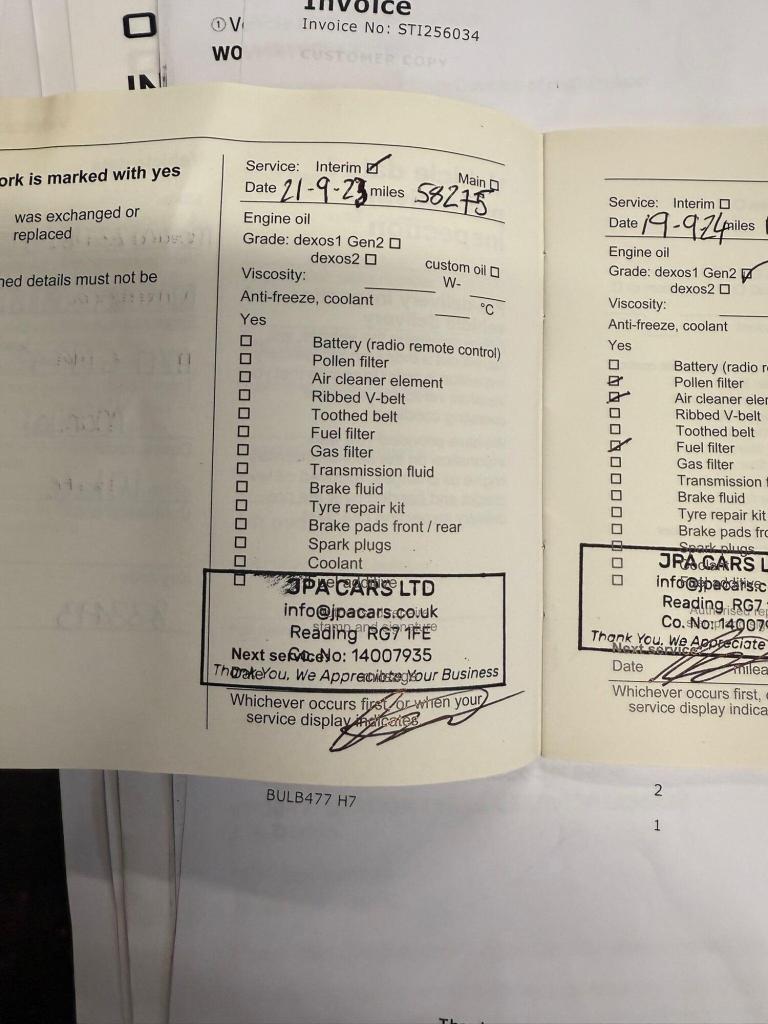 Invoice
Invoice No: STI256034
① V
WO
CUSTOMER COPY
IN
ork is marked with yes
was exchanged or
replaced
ned details must not be
Service: Interim ☑ Main ☐
Date 21-9-23 miles 58275
Engine oil
Grade: dexos1 Gen2 ☐
dexos2 ☐ custom oil ☐
Viscosity: W-
Anti-freeze, coolant °C
Yes
☐ Battery (radio remote control)
☐ Pollen filter
☐ Air cleaner element
☐ Ribbed V-belt
☐ Toothed belt
☐ Fuel filter
☐ Gas filter
☐ Transmission fluid
☐ Brake fluid
☐ Tyre repair kit
☐ Brake pads front / rear
☐ Spark plugs
☐ Coolant
☐ Fuel additive
JPA CARS LTD
info@jpacars.co.uk
stamp and signature
Reading RG7 1FE
Next service:
Co. No: 14007935
Date
Thank You, We Appreciate Your Business
Whichever occurs first, or when your
service display indicates
Service: Interim ☐
Date 19-9-24 miles
Engine oil
Grade: dexos1 Gen2 ☑
dexos2 ☐
Viscosity:
Anti-freeze, coolant
Yes
☐ Battery (radio r
☑ Pollen filter
☑ Air cleaner elem
☐ Ribbed V-belt
☐ Toothed belt
☑ Fuel filter
☐ Gas filter
☐ Transmission f
☐ Brake fluid
☐ Tyre repair kit
☐ Brake pads fro
☐ Spark plugs
☐ Coolant
☐ Fuel additive
JPA CARS L
info@jpacars.c
Authorised rep
Reading RG7
Co. No: 14007
Thank You, We Appreciate
Next service:
Date milea
Whichever occurs first,
service display indica
BULB477 H7
2
1